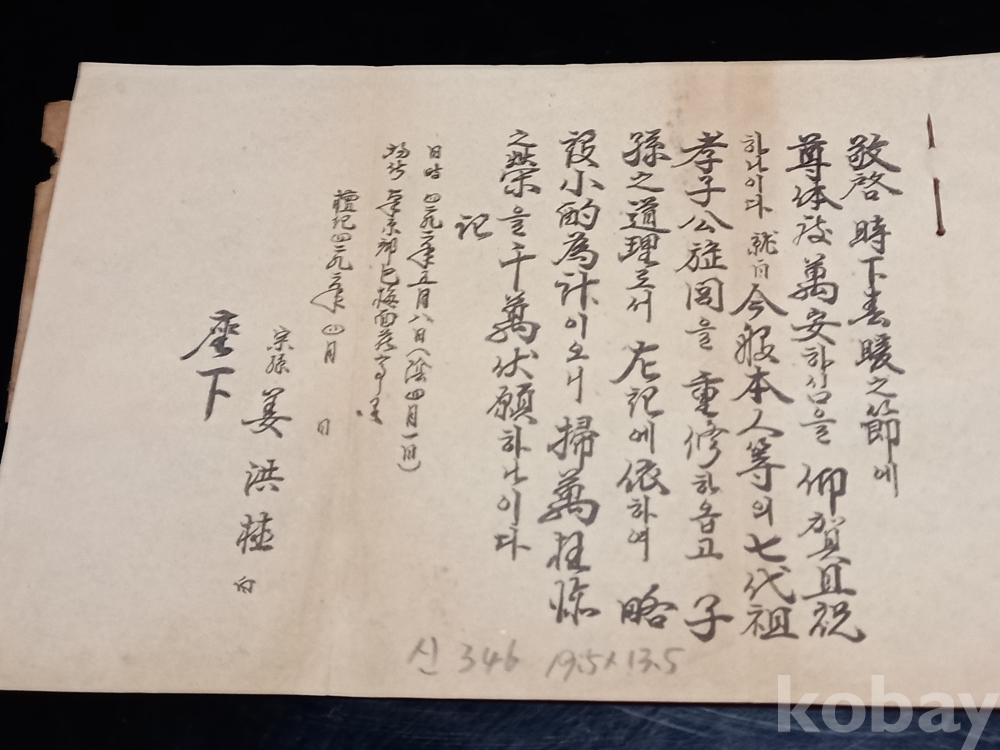 敬啓 時下春暖之節에
尊体度萬安하심을 仰賀且祝
하나이다 就白 今般本人等의 七代祖
孝子公旌閭을 重修하옵고 子
孫之道理로서 左記에 依하여 略
設小酌為計이오니 掃萬枉臨
之榮을 千萬伏願하나이다
記
日時 四二九二年五月八日(陰四月一日)
場所
檀紀四二九二年 四月 日
宗孫 姜洪 白
座下
신 346 19.5x13.5
kobay